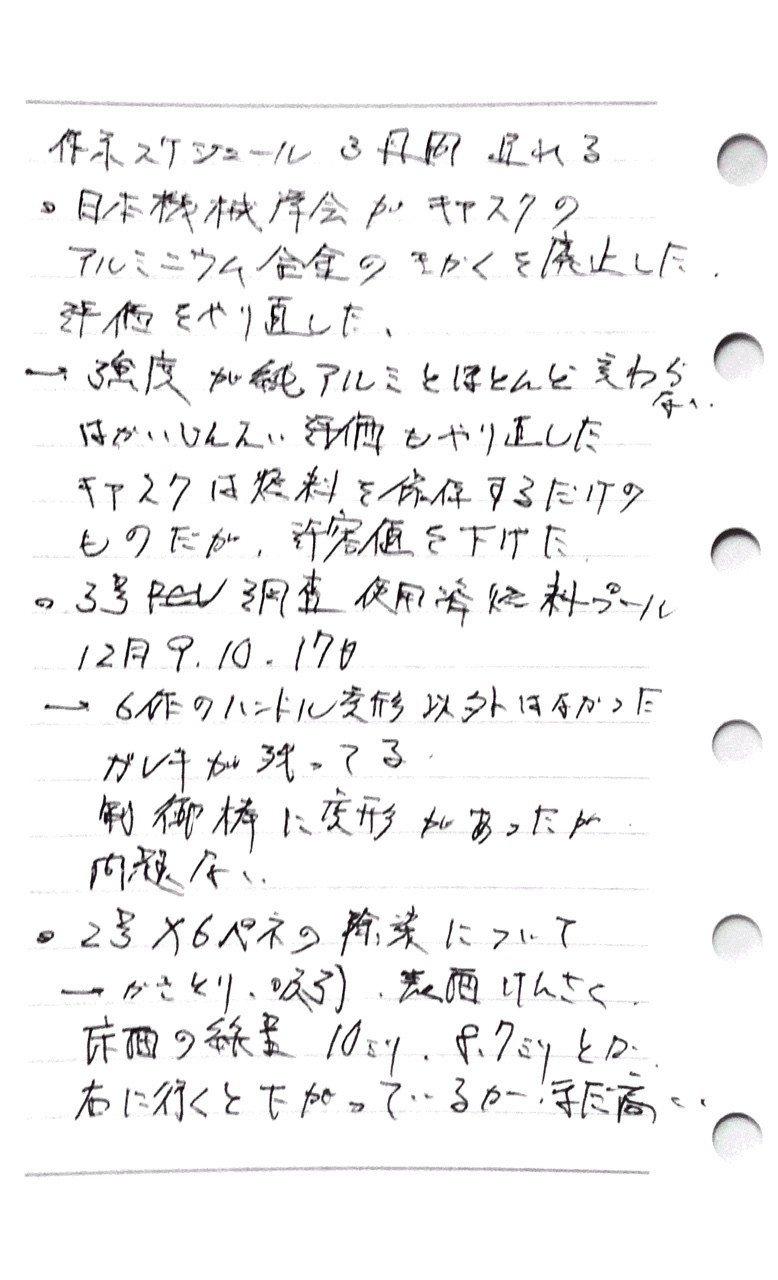 作業スケジュール 3ヶ月 遅れる
• 日本機械学会が キャスクの
アルミニウム合金のきかくを廃止した.
評価をやり直した、
→ 強度が純アルミとほとんど変わらない.
はかいじんえい 評価もやり直した
キャスクは燃料を保存するだけの
ものだが、許容値を下げた
• 3号PCV調査 使用済燃料プール
12月9.10.17日
→ 6体のハンドル変形以外はなかった
ガレキが残ってる.
制御棒に変形があったが
問題ない.
• 2号X6ペネの除染について
→ かきとり、吸引、表面けんさく.
床面の線量 10ミリ. 8.7ミリとか.
右に行くと下がっているがまだ高い.